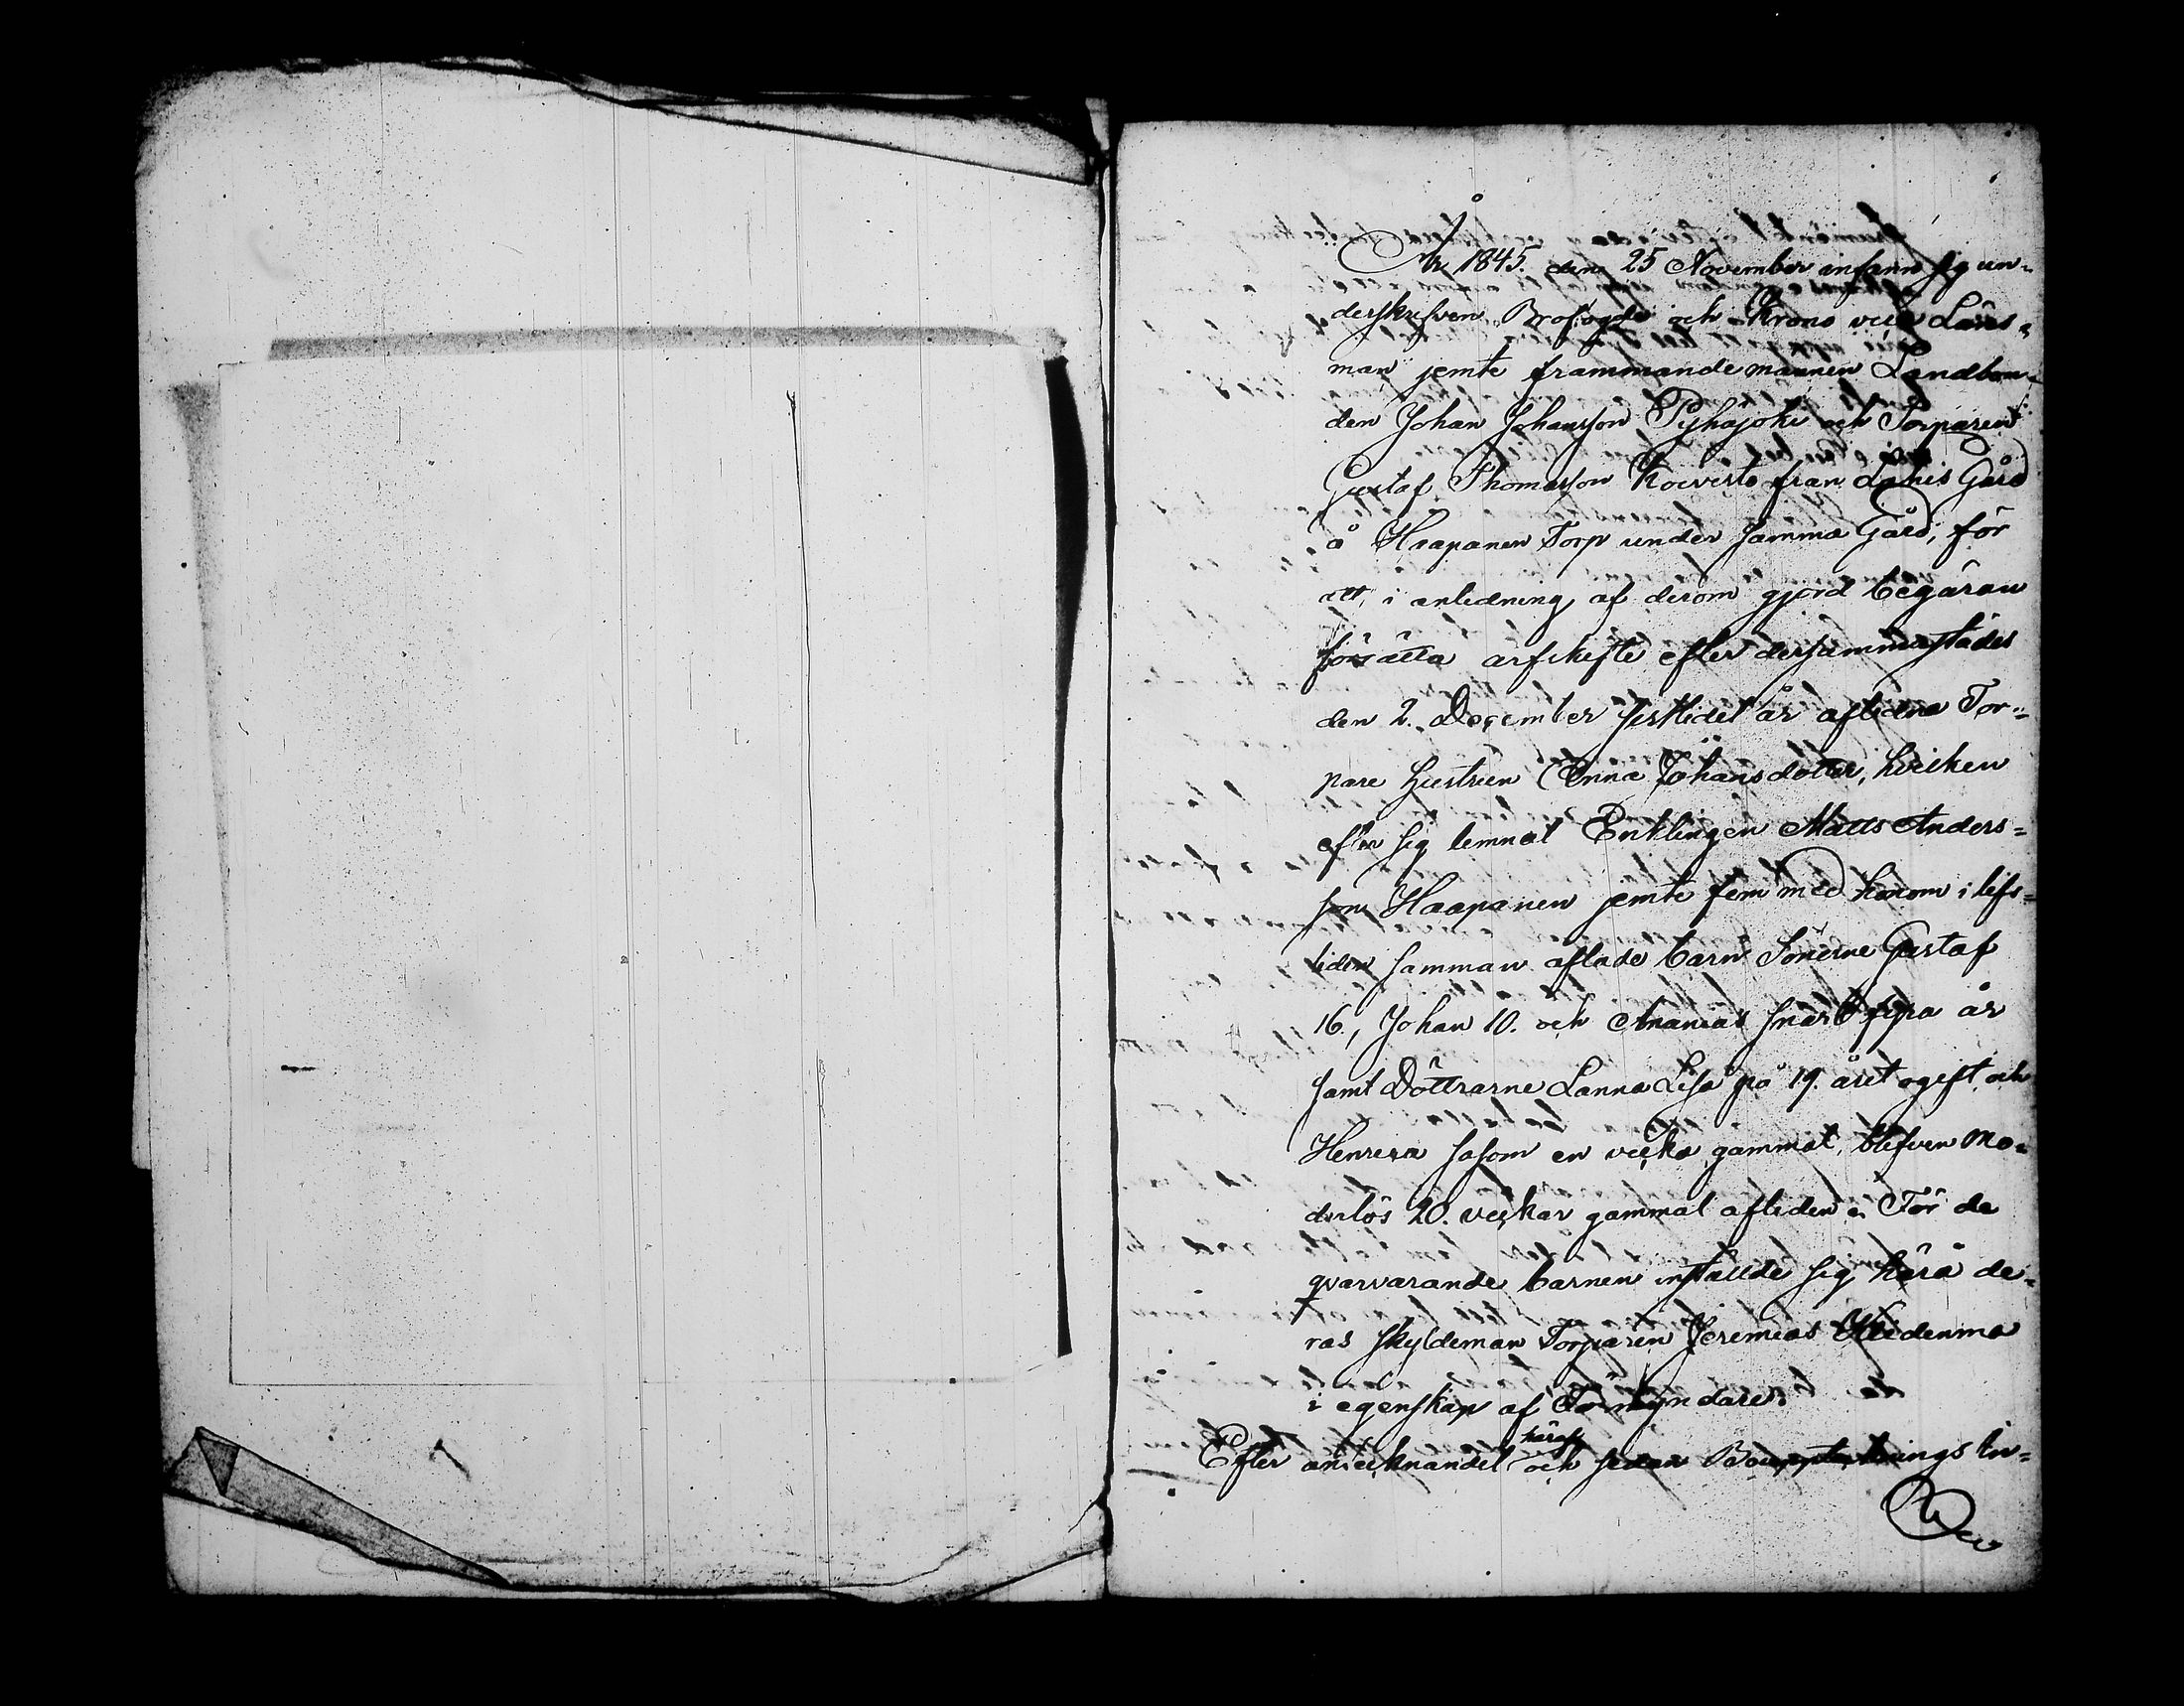 År 1845. den 25 November infann sig un-
derskrifven Brofogde och Krono vice Läns-
man jemte frammande männen Landbon-
den Johan Johansson Pyhäjoki och Torparen
Gustaf Thomasson Koivisto från Gård
å Haapanen Torp under samma Gård, för
att, i anledning af derom gjord begäran
förrätta arfskifte efter dersammastädes
den 2. December sistledet år aflidna Tor-
pare hustrun Anna Johansdotter, hvilken
efter sig lemnat Enklingen Matts Anders-
son Haapanen jemte fem med honom i lifs-
tiden samman aflade barn Sönerne Gustaf
16., Johan 10. och Ananias snart fyra år
samt Döttrarne Lisa på 19. året ogift, och
såsom en vecka gammal, blifven mo-
derlös 20. veckor gammal afliden. För de
qvarvarande barnen inställde sig härå de-
ras skyldeman Torparen Jeremias
i egenskap af Förmyndare.
Efter antecknandet häraf och sedan Bouppteknings In-